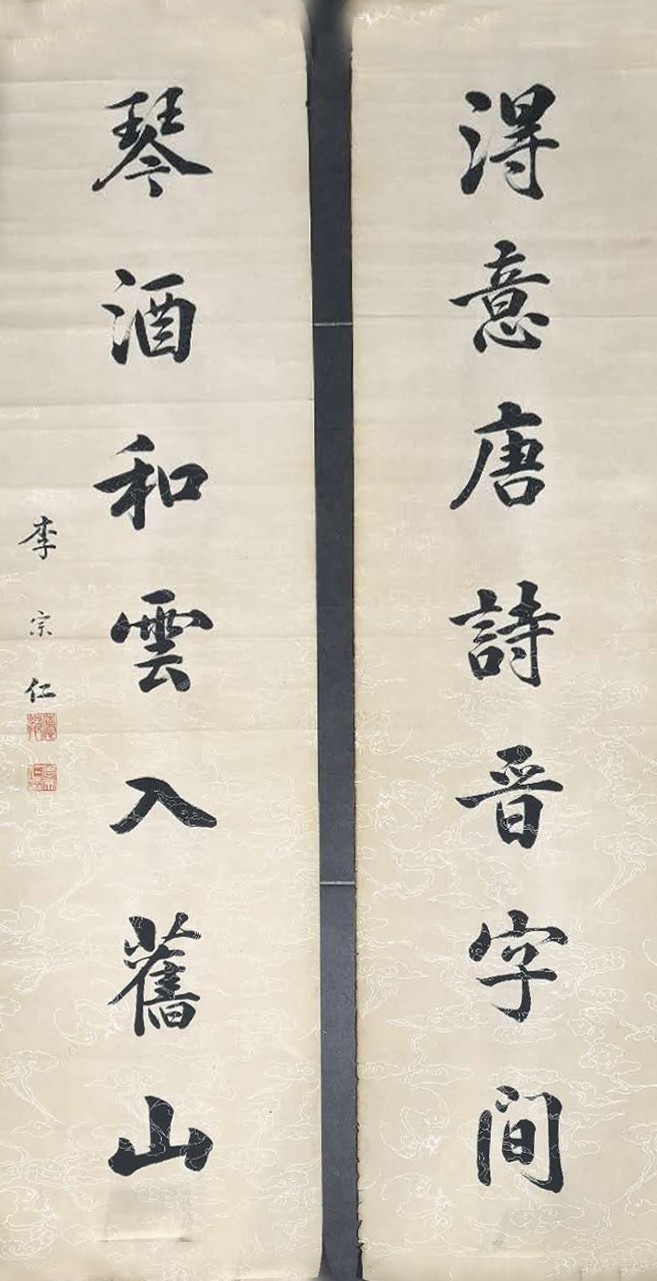 得意唐詩晉字間
琴酒和雲入舊山
李宗仁